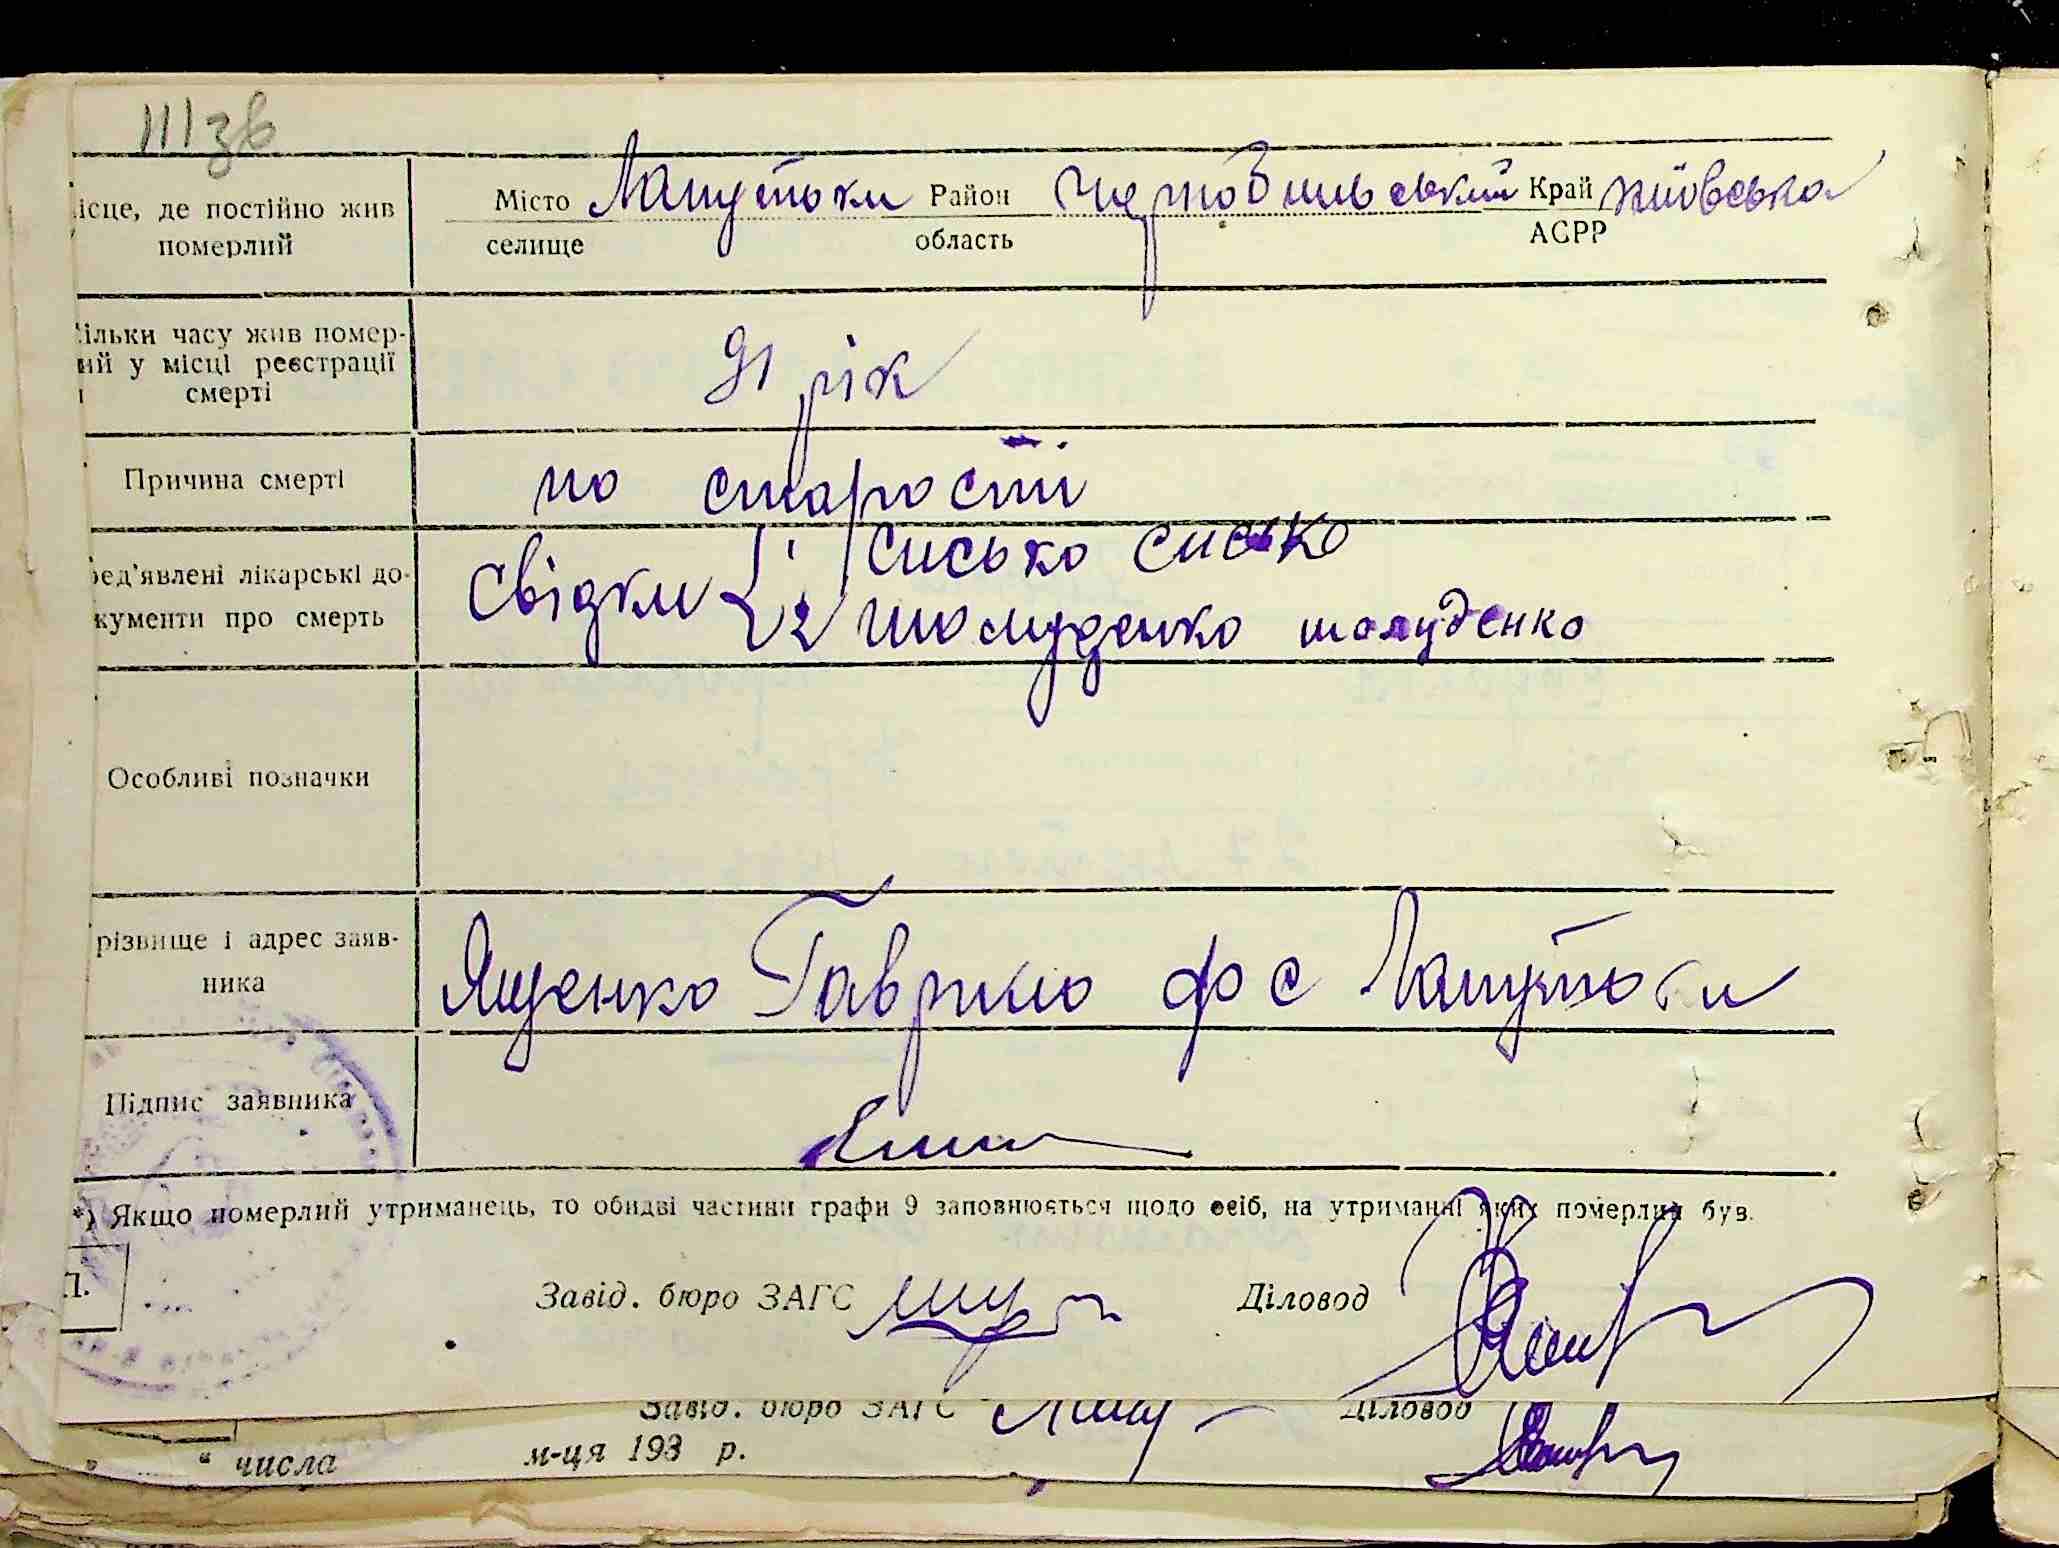 111 зв
ісце, де постійно жив
померлий
Місто Лапутьки Район Чорнобильський Край Київська
селище область АСРР
ільки часу жив помер-
ий у місці реєстрації
смерті
91 рік
Причина смерті
по старості
ред'явлені лікарські до-
кументи про смерть
Свідки { 1 Сисько Сисько
2 Шолуденко шолуденко
Особливі позначки
різвище і адрес заяв-
ника
Ященко Гаврило ф с Лапутьки
Підпис заявника
*) Якщо померлий утриманець, то обидві частини графи 9 заповнюється щодо осіб, на утриманні яких померлий був.
П.
Завід. бюро ЗАГС Діловод
Завід. бюро ЗАГС Діловод
„ “ числа м-ця 193 р.